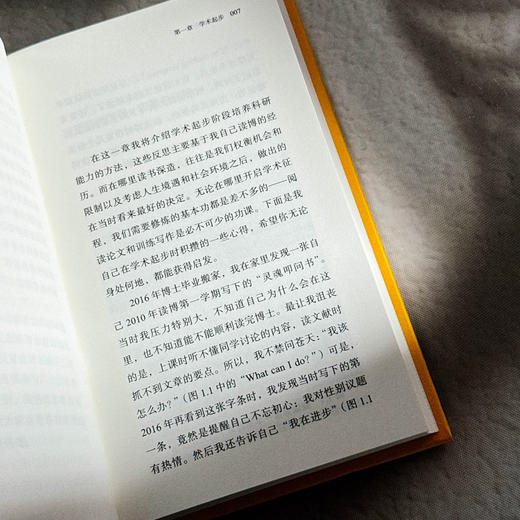 第一章 学术起步 007
在这一章我将介绍学术起步阶段培养科研
能力的方法，这些反思主要基于我自己读博的经
历。而在哪里读书深造，往往是我们权衡机会和
限制以及考虑人生境遇和社会环境之后，做出的
在当时看来最好的决定。无论在哪里开启学术征
程，我们需要修炼的基本功都是差不多的——阅
读论文和训练写作是必不可少的功课。下面是我
自己在学术起步时积攒的一些心得，希望你无论
身处何地，都能获得启发。
2016年博士毕业搬家，我在家里发现一张自
己2010年读博第一学期写下的“灵魂叩问书”。
当时我压力特别大，不知道自己为什么会在这
里，也不知道能不能顺利读完博士。最让我沮丧
的是，上课时听不懂同学讨论的内容，读文献时
抓不到文章的要点。所以，我不禁问苍天：“我该
怎么办？”（图1.1中的“What can I do?”）可是，
2016年再看到这张字条时，我发现当时写下的第
一条，竟然是提醒自己不忘初心：我对性别议题
有热情。然后我还告诉自己“我在进步”（图1.1